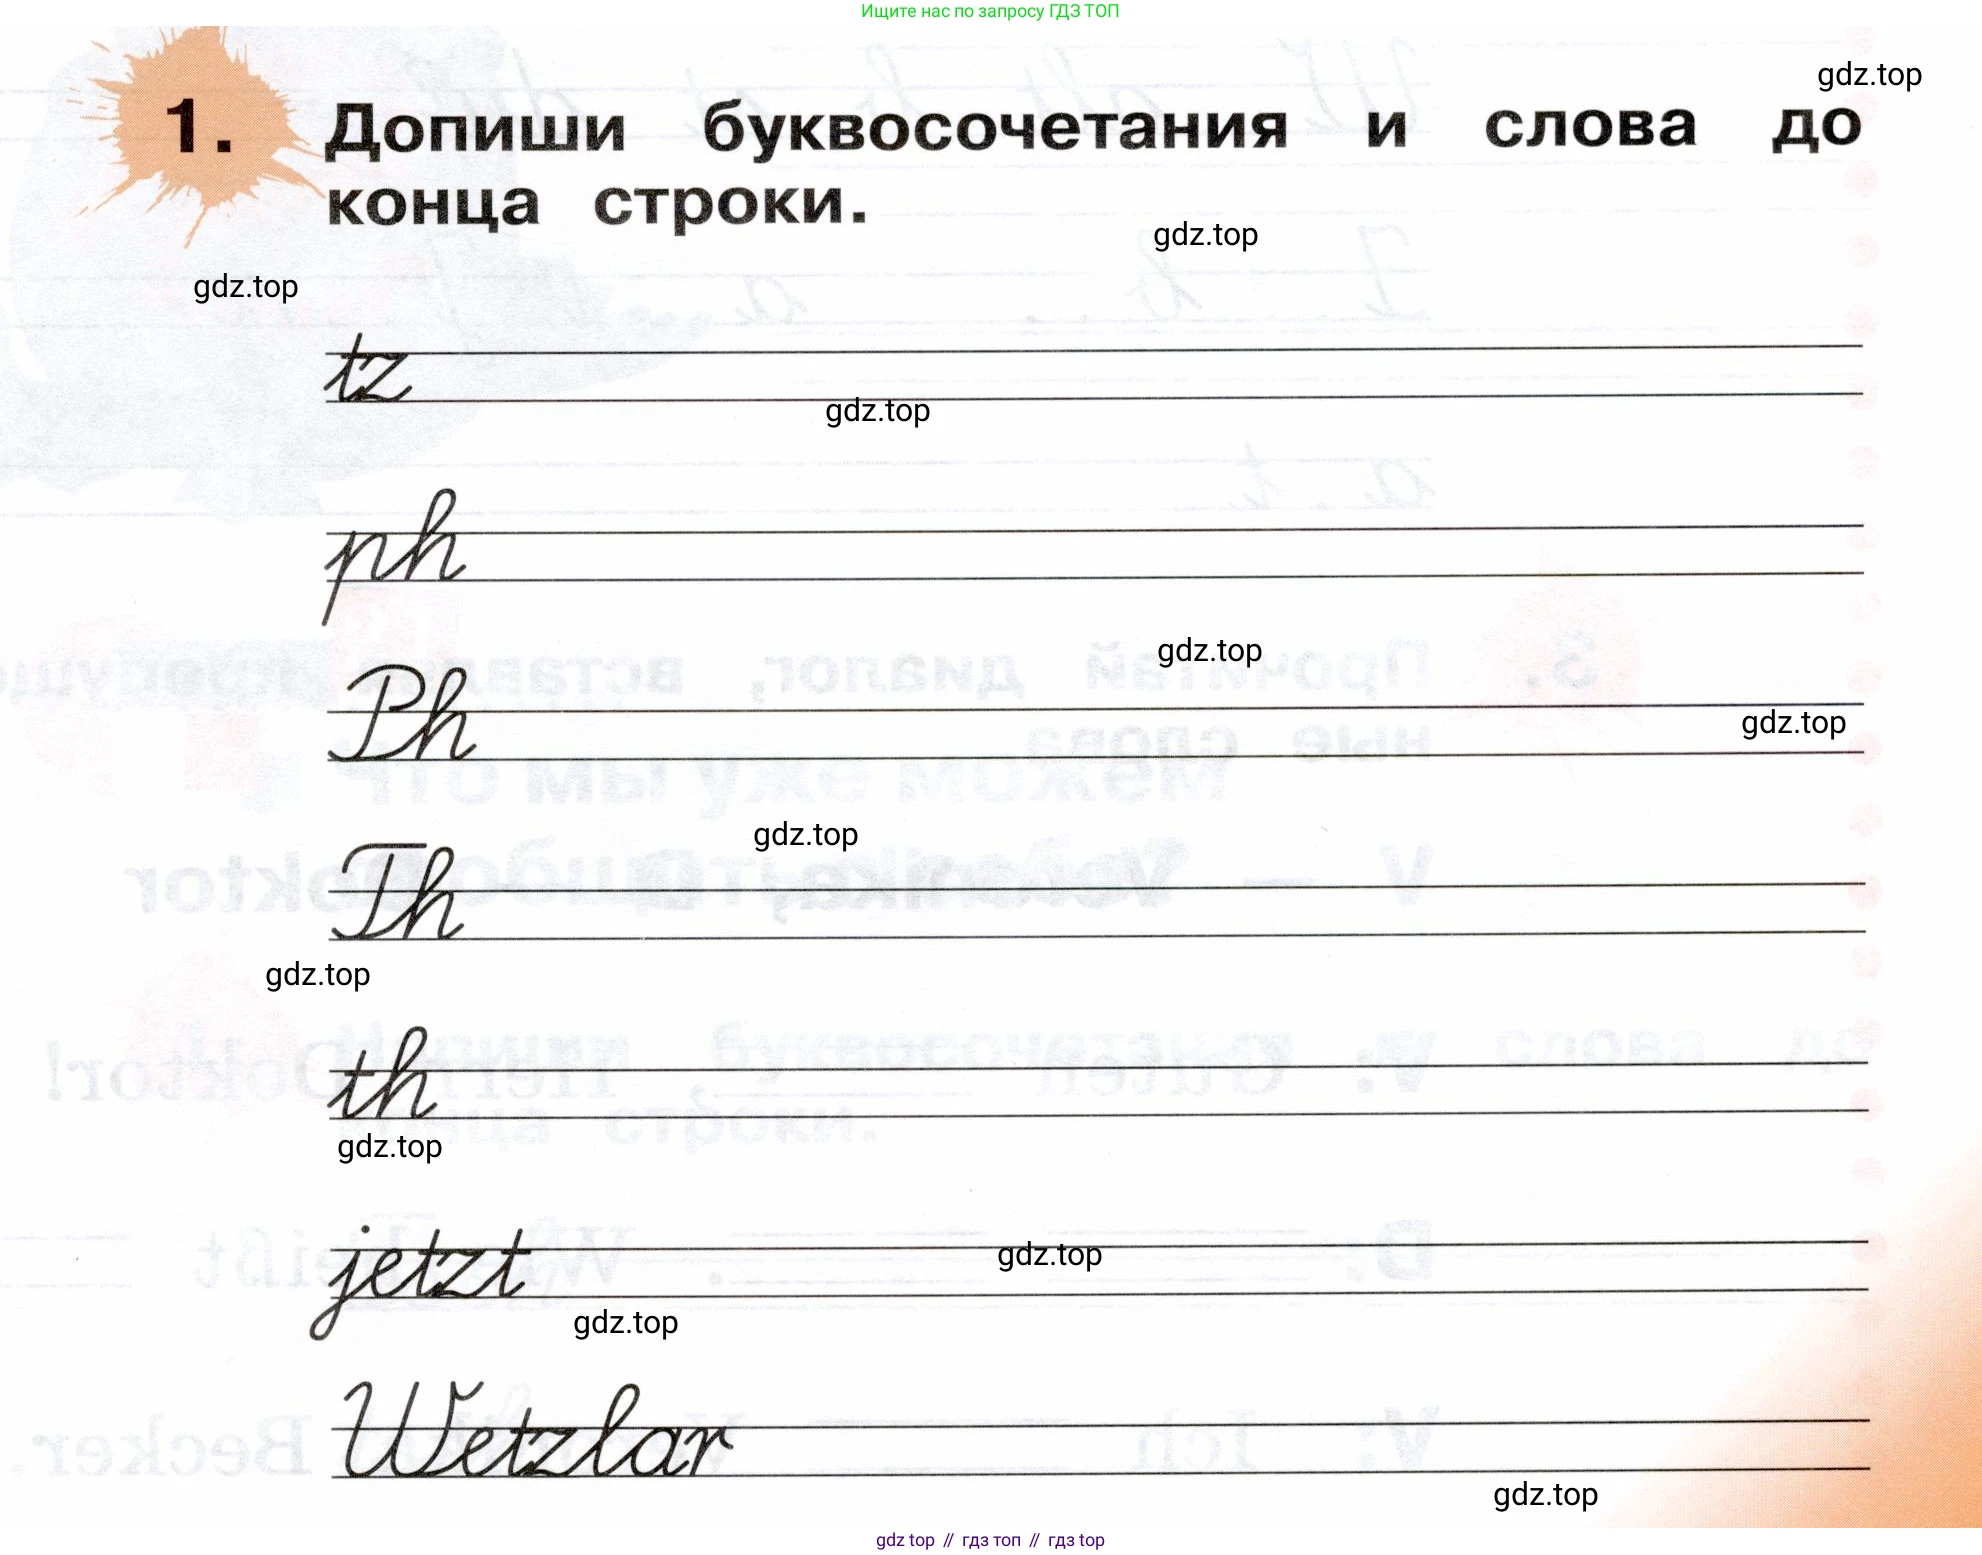 Ищите нас по запросу ГДЗ ТОП
gdz.top
1. Допиши буквосочетания и слова до
конца строки.
gdz.top
gdz.top
tz
gdz.top
ph
gdz.top
Ph
gdz.top
gdz.top
Th
gdz.top
th
gdz.top
jetzt
gdz.top
gdz.top
Wetzlar
gdz.top
gdz top // гдз топ // gdz top